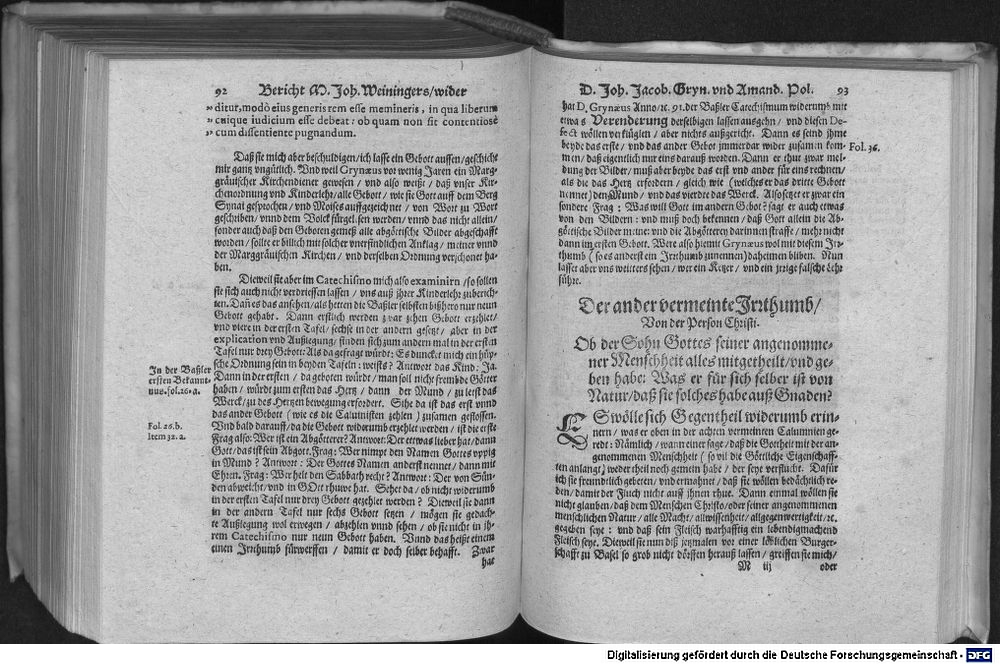 92 Bericht M. Joh. Weiningers/wider
„ditur, modò eius generis rem esse memineris, in qua liberum
„cuique iudicium esse debeat: ob quam non sit contentiosè
„cum dissentiente pugnandum.
Daß sie mich aber beschuldigen/ich lasse ein Gebott aussen/geschicht
mir gantz vngütlich. Vnd weil Grynæus vor wenig Jaren ein Marg-
gräuischer Kirchendiener gewesen / vnd also weißt / daß vnser Kir-
chenordnung vnd Kinderlehr/alle Gebott / wie sie Gott auff dem Berg
Synai gesprochen / vnd Moises auffgezeichnet / von Wort zu Wort
geschriben/ vnnd dem Volck fürgelesen werden/ vnnd das nicht allein/
sonder auch daß den Geboten gemeß alle abgöttische Bilder abgeschafft
worden / solte er billich mit solcher vnerfindlichen Anklag / meiner vnnd
der Marggräuischen Kirchen / vnd derselben Ordnung verschonet ha-
ben.
Dieweil sie aber im Catechismo mich also examinirn /so sollen
sie sich auch nicht verdriessen lassen / vns auß jhrer Kinderlehr zuberich-
ten. Dañ es das ansehen/als hetten die Baßler selbsten bißhero nur neun
Gebott gehabt. Dann erstlich werden zwar zehen Gebott erzehlet/
vnd viere in der ersten Tafel/ sechse in der andern gesetzt/ aber in der
explication vnd Außlegung/ finden sich zum andern mal in der ersten
Tafel nur drey Gebott: Als da gefragt würdt: Es dunckt mich ein hüp-
sche Ordnung sein in beyden Tafeln: weists? Antwort das Kind: Ja.
Dann in der ersten / da geboten würdt / man soll nicht frembde Götter
haben / würdt zum ersten das Hertz / dann der Mund / zu letst das
Werck/ zu des Hertzen bewegung erfordert. Sihe da ist das erst vnnd
das ander Gebott (wie es die Caluinisten zehlen) zusamen gestossen.
Vnd bald darauff/da die Gebott widerumb erzehlet werden / ist die erste
Frag also: Wer ist ein Abgötterer? Antwort: Der ettwas lieber hat/dann
Gott/das ist sein Abgott. Frag: Wer nimpt den Namen Gottes vppig
in Mund? Antwort: Der Gottes Namen anderst nennet/dann mit
Ehren. Frag: Wer helt den Sabbath recht? Antwort: Der von Sün-
den abweicht/vnd in GOtt rhuwe hat. Sehet da / ob nicht widerumb
in der ersten Tafel nur drey Gebott gezehlet werden? Dieweil sie dann
in der andern Tafel nur sechs Gebott setzen / mögen sie gedach-
te Außlegung wol erwegen / abzehlen vnnd sehen / ob sie nicht in jh-
rem Catechismo nur neun Gebott haben. Vnnd das heißt einem
einen Irrthumb fürwerffen / damit er doch selber behafft. Zwar
hat
In der Baßler
ersten Bekannt-
nus. fol. 26. a.
Fol. 26. b.
Item 32. a.
D. Joh. Jacob. Gryn. vnd Amand. Pol. 93
hat D. Grynæus Anno/ꝛc. 91. der Baßler Catechismum widerumb mit
etwas Verenderung derselbigen lassen ausgehn / vnd diesen De-
fect wöllen verklüglen / aber nichts außgericht. Dann es seind jhme
beyde das erste/vnd das ander Gebot jmmerdar wider zusamen kom-
men/ daß eigentlich nur eins darauß worden. Dann er thut zwar mel-
dung der Bilder/ muß aber beyde das erst vnd ander für eins rechnen/
als die das Hertz erfordern / gleich wie (welches er das dritte Gebott
nennet) den Mund / vnd das vierdte das Werck. Also setzet er zwar ein
sondere Frag: Was will Gott im andern Gebot? sagt er auch etwas
von den Bildern: vnd muß doch bekennen / daß Gott allein die Ab-
göttische Bilder meine: vnd die Abgötterey darinnen straffe/ mehr nicht
dann im ersten Gebott. Were also hiemit Grynæus wol mit diesem Irr-
thumb (so es anderst ein Irrthumb zunennen) daheimen bliben. Nun
lasset aber vns weitters sehen/ wer ein Ketzer/ vnd ein jrrige falsche Lehr
führe.
Fol. 36.
Der ander vermeinte Irrthumb/
Von der Person Christi.
Ob der Sohn Gottes seiner angenomme-
ner Menschheit alles mitgetheilt/vnd ge-
ben habe: Was er für sich selber ist von
Natur/daß sie solches habe auß Gnaden?
ES wölle sich Gegentheil widerumb erin-
nern / was er oben in der achten vermeinten Calumnien ge-
redt: Nämlich / wann einer sage / daß die Gottheit mit der an-
genommenen Menschheit (so vil die Göttliche Eigenschaff-
ten anlangt) weder theil noch gemein habe / der seye verflucht. Dafür
ich sie freundlich gebeten/ vnd ermahnet / daß sie wöllen bedächtlich re-
den/ damit der Fluch nicht auff jhnen rhue. Dann einmal wöllen sie
nicht glauben/daß dem Menschen Christo/oder seiner angenommenen
menschlichen Natur / alle Macht/ allwissenheit/ allgegenwertigkeit/ ꝛc.
gegeben seye: vnd daß sein Fleisch warhafftig ein lebendigmachend
Fleisch seye. Dieweil sie nun diß jetzmalen vor einer löblichen Burger-
schafft zu Basel so grob nicht dörffen herauß lassen / greiffen sie mich/
M iij oder
Digitalisierung gefördert durch die Deutsche Forschungsgemeinschaft - DFG